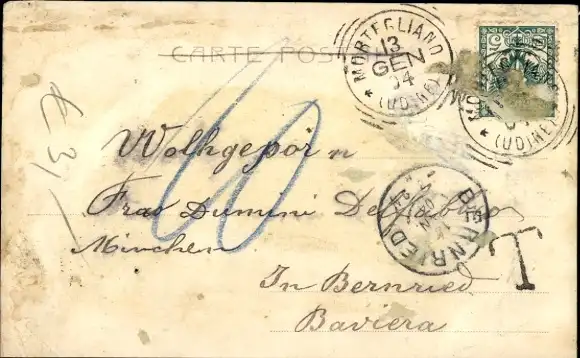 CARTE POSTALE
* MORTEGLIANO * (UDINE)
13 GEN 04
(UDINE)
€ 3,-
10
Wolhgeporn
Frau Dumini Delfabbro
München
BERNRIED
T
In Bernried
Baviera